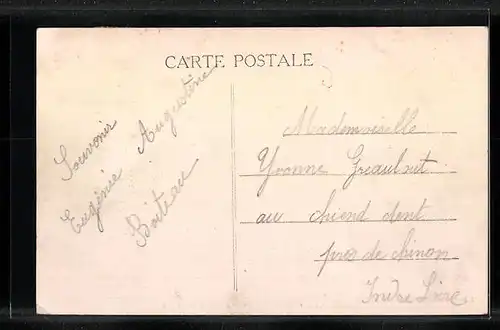 CARTE POSTALE
Souvenir
Eugénie Augustine
Boiteau
Mademoiselle
Yvonne
au chiend dent
près de chinon
Indre Loire